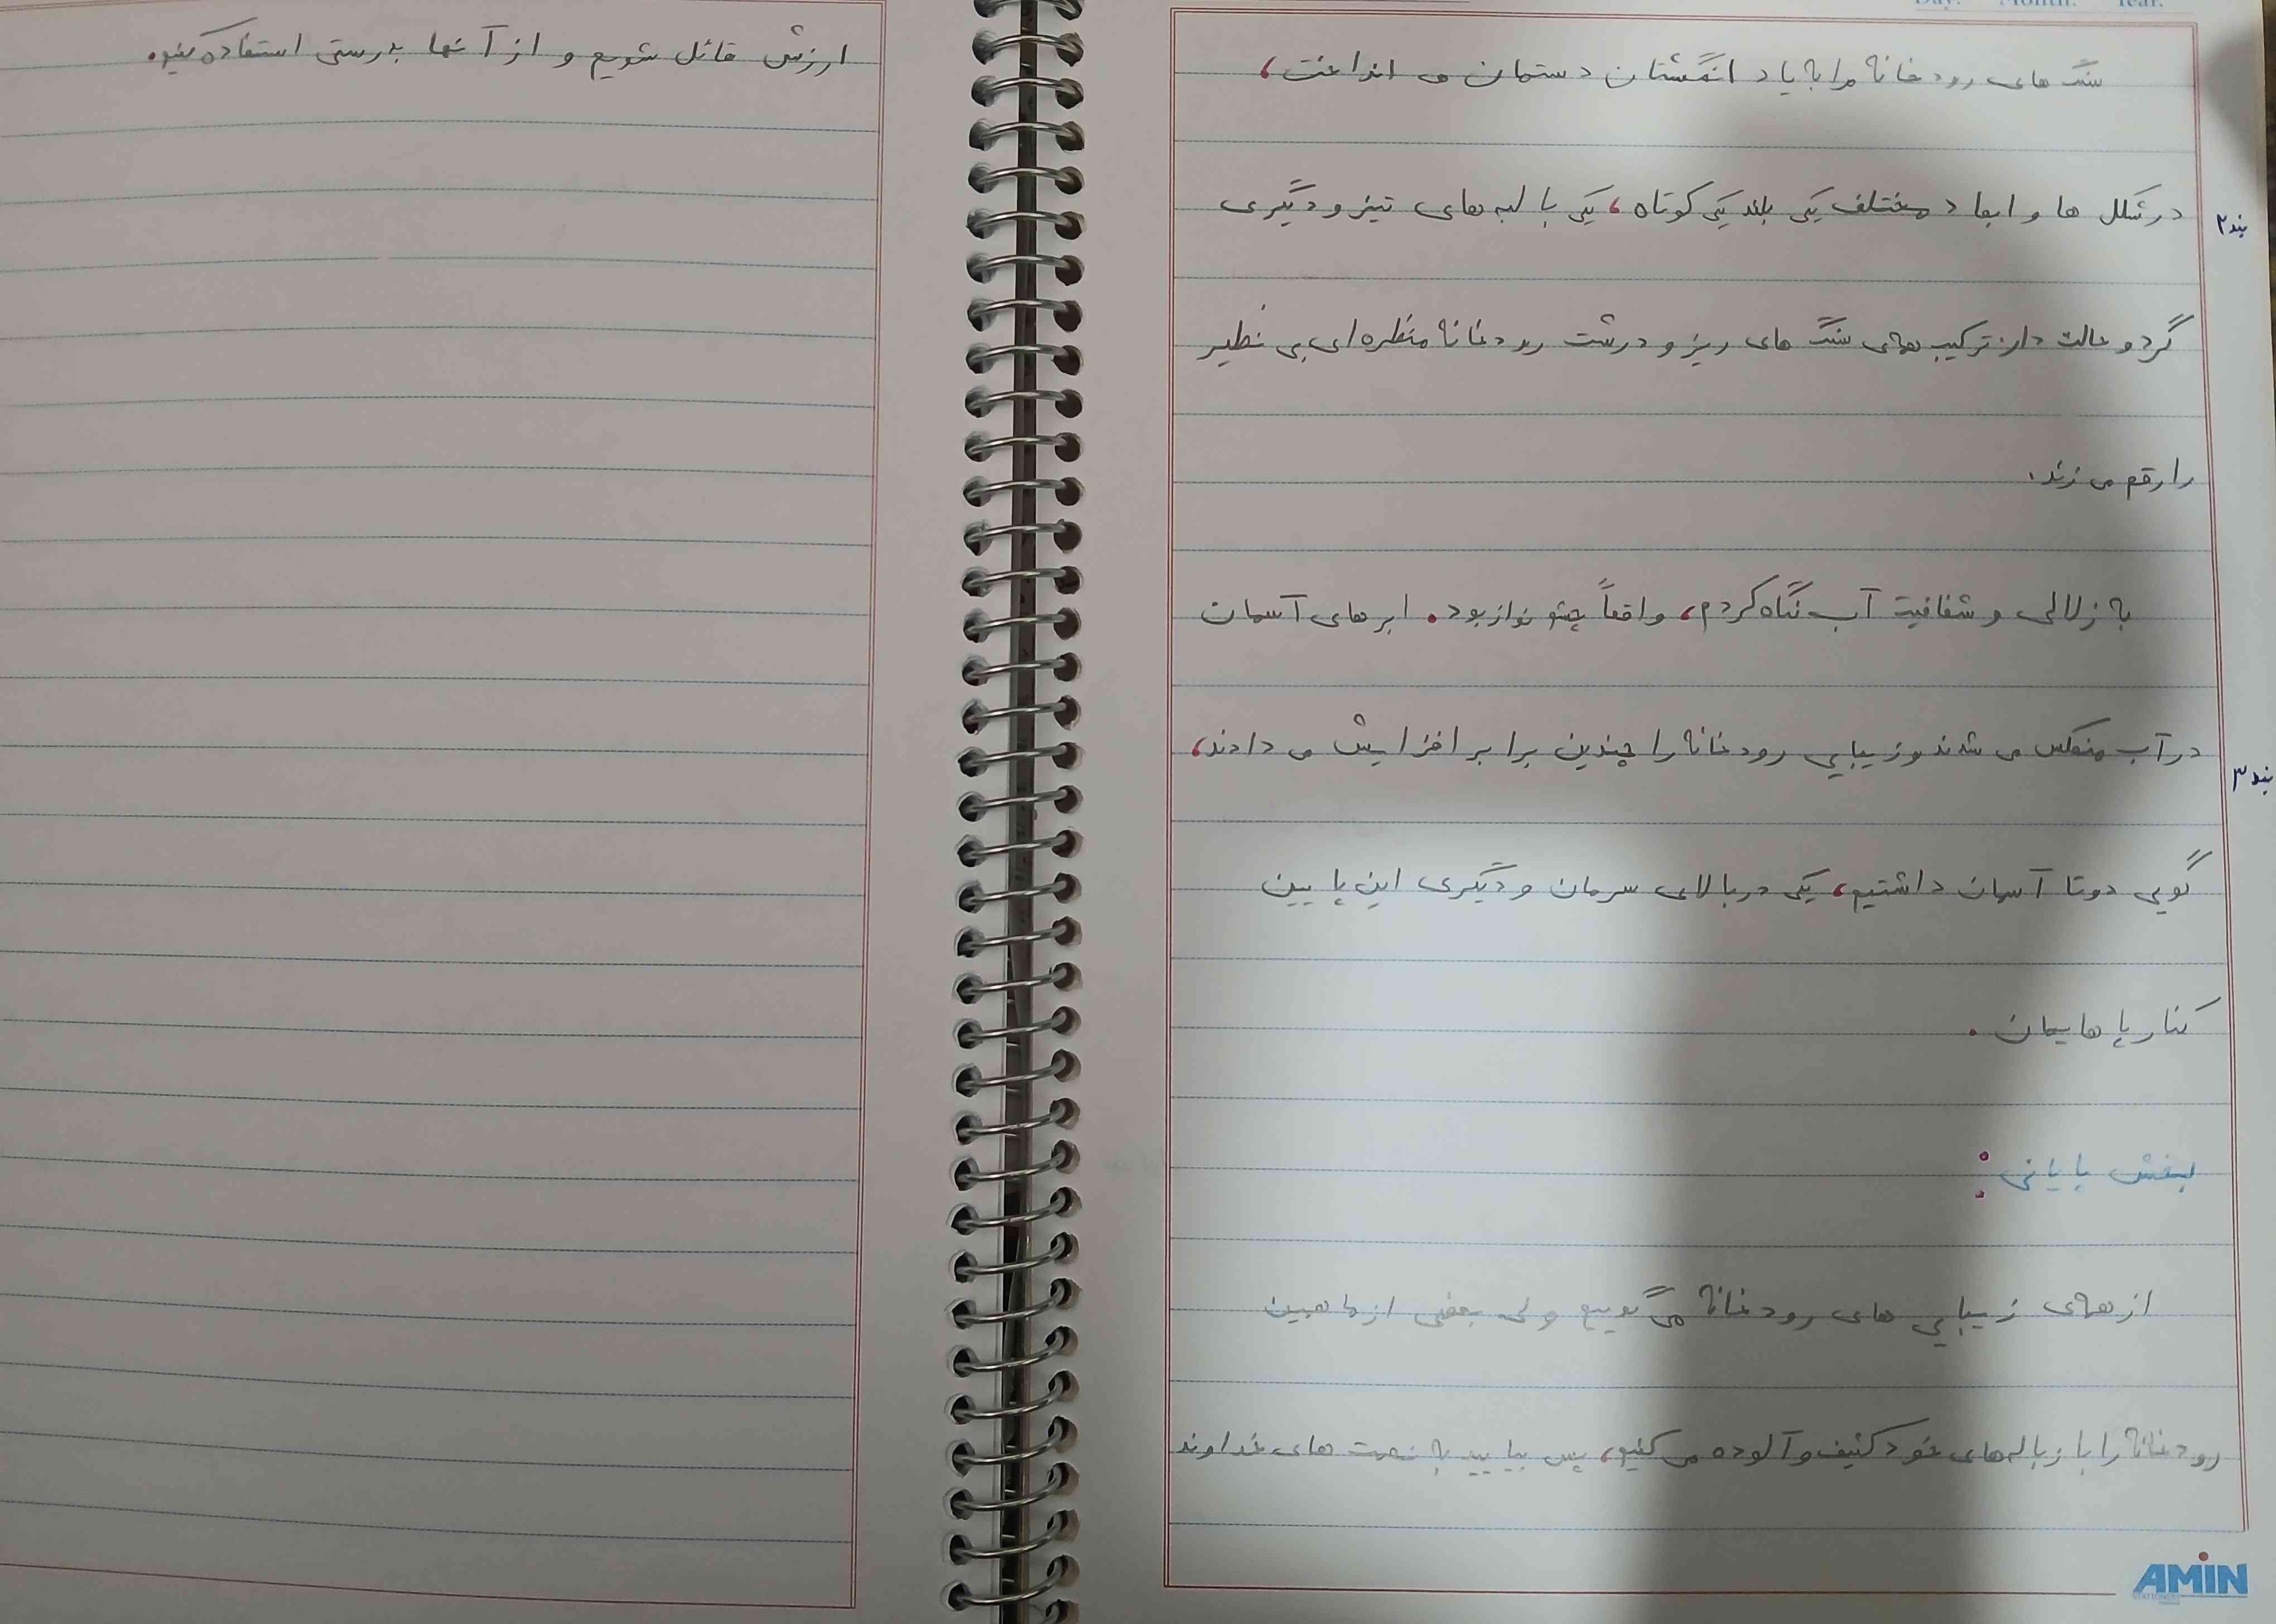 Day: Month: Year:
سنگ های رودخانه مرا به یاد انگشتان دستمان می انداخت،
بند۲
در شکل ها و ابعاد مختلف یکی بلند یکی کوتاه، یکی با لبه های تیز و دیگری
گرد و حالت دار. ترکیب همه‌ی سنگ های ریز و درشت رودخانه منظره ای بی نظیر
را رقم می زند.
به زلالی و شفافیت آب نگاه کردم، واقعاً چشم نواز بود. ابر های آسمان
در آب منعکس می شدند و زیبایی رودخانه را چندین برابر افزایش می دادند،
بند۳
گویی دوتا آسمان داشتیم، یکی در بالای سرمان و دیگری این پایین
کنار پا هایمان.
بخش پایانی:
از همه‌ی زیبایی های رودخانه می گوییم ولی بعضی از ما همین
رودخانه را با زباله‌های خود کثیف و آلوده می کنیم، پس بیایید به نعمت های خداوند
AMIN
STATIONERY
ارزش قائل شویم و از آنها بدرستی استفاده کنیم.